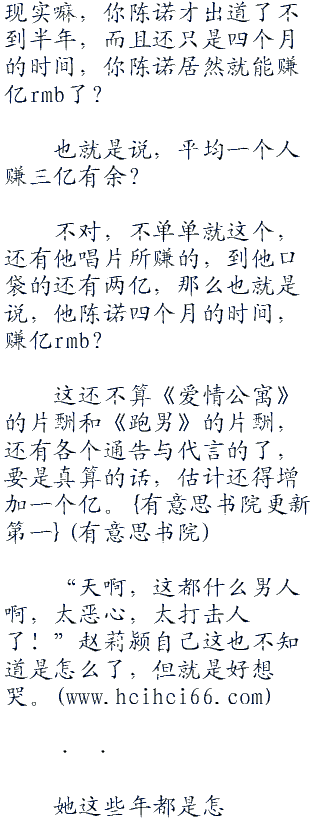 现实嘛，你陈诺才出道了不
到半年，而且还只是四个月
的时间，你陈诺居然就能赚
亿rmb了？
也就是说，平均一个人
赚三亿有余？
不对，不单单就这个，
还有他唱片所赚的，到他口
袋的还有两亿，那么也就是
说，他陈诺四个月的时间，
赚亿rmb？
这还不算《爱情公寓》
的片酬和《跑男》的片酬，
还有各个通告与代言的了，
要是真算的话，估计还得增
加一个亿。{有意思书院更新
第一}(有意思书院)
“天啊，这都什么男人
啊，太恶心，太打击人
了！”赵莉颍自己这也不知
道是怎么了，但就是好想
哭。(www.hcihci66.com)
． ．
她这些年都是怎